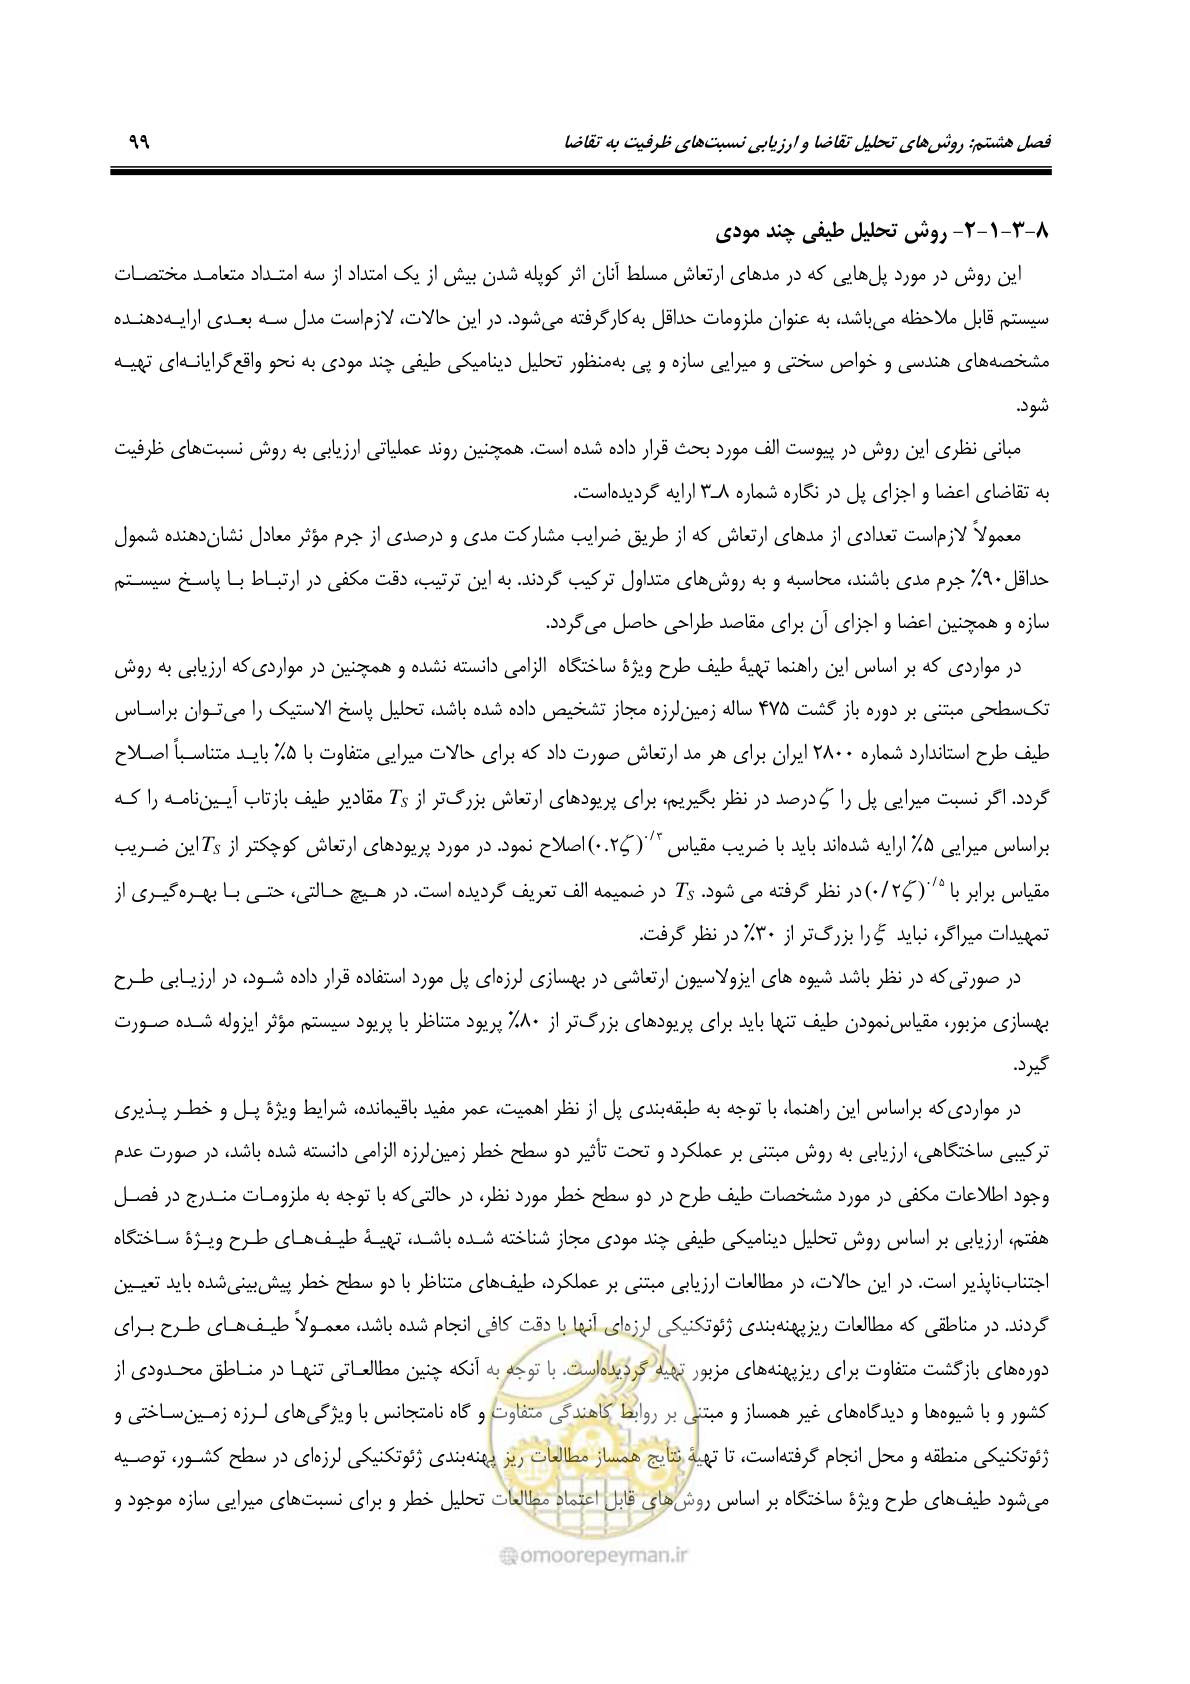 فصل هشتم: روش‌های تحلیل تقاضا و ارزیابی نسبت‌های ظرفیت به تقاضا ۹۹
۸-۳-۱-۲- روش تحلیل طیفی چند مودی
این روش در مورد پل‌هایی که در مدهای ارتعاش مسلط آنان اثر کوپله شدن بیش از یک امتداد از سه امتداد متعامد مختصات
سیستم قابل ملاحظه می‌باشد، به عنوان ملزومات حداقل به‌کارگرفته می‌شود. در این حالات، لازم‌است مدل سه بعدی ارایه‌دهنده
مشخصه‌های هندسی و خواص سختی و میرایی سازه و پی به‌منظور تحلیل دینامیکی طیفی چند مودی به نحو واقع‌گرایانه‌ای تهیه
شود.
مبانی نظری این روش در پیوست الف مورد بحث قرار داده شده است. همچنین روند عملیاتی ارزیابی به روش نسبت‌های ظرفیت
به تقاضای اعضا و اجزای پل در نگاره شماره ۸ـ۳ ارایه گردیده‌است.
معمولاً لازم‌است تعدادی از مدهای ارتعاش که از طریق ضرایب مشارکت مدی و درصدی از جرم مؤثر معادل نشان‌دهنده شمول
حداقل۹۰٪ جرم مدی باشند، محاسبه و به روش‌های متداول ترکیب گردند. به این ترتیب، دقت مکفی در ارتباط با پاسخ سیستم
سازه و همچنین اعضا و اجزای آن برای مقاصد طراحی حاصل می‌گردد.
در مواردی که بر اساس این راهنما تهیۀ طیف طرح ویژۀ ساختگاه الزامی دانسته نشده و همچنین در مواردی‌که ارزیابی به روش
تک‌سطحی مبتنی بر دوره باز گشت ۴۷۵ ساله زمین‌لرزه مجاز تشخیص داده شده باشد، تحلیل پاسخ الاستیک را می‌توان براساس
طیف طرح استاندارد شماره ۲۸۰۰ ایران برای هر مد ارتعاش صورت داد که برای حالات میرایی متفاوت با ۵٪ باید متناسباً اصلاح
گردد. اگر نسبت میرایی پل را ζ درصد در نظر بگیریم، برای پریودهای ارتعاش بزرگ‌تر از T_S مقادیر طیف بازتاب آیین‌نامه را که
براساس میرایی ۵٪ ارایه شده‌اند باید با ضریب مقیاس (۰.۲ζ)^۰/۳ اصلاح نمود. در مورد پریودهای ارتعاش کوچکتر از T_S این ضریب
مقیاس برابر با (۰/۲ζ)^۰/۵ در نظر گرفته می شود. T_S در ضمیمه الف تعریف گردیده است. در هیچ حالتی، حتی با بهره‌گیری از
تمهیدات میراگر، نباید ξ را بزرگ‌تر از ۳۰٪ در نظر گرفت.
در صورتی‌که در نظر باشد شیوه های ایزولاسیون ارتعاشی در بهسازی لرزه‌ای پل مورد استفاده قرار داده شود، در ارزیابی طرح
بهسازی مزبور، مقیاس‌نمودن طیف تنها باید برای پریودهای بزرگ‌تر از ۸۰٪ پریود متناظر با پریود سیستم مؤثر ایزوله شده صورت
گیرد.
در مواردی‌که براساس این راهنما، با توجه به طبقه‌بندی پل از نظر اهمیت، عمر مفید باقیمانده، شرایط ویژۀ پل و خطر پذیری
ترکیبی ساختگاهی، ارزیابی به روش مبتنی بر عملکرد و تحت تأثیر دو سطح خطر زمین‌لرزه الزامی دانسته شده باشد، در صورت عدم
وجود اطلاعات مکفی در مورد مشخصات طیف طرح در دو سطح خطر مورد نظر، در حالتی‌که با توجه به ملزومات مندرج در فصل
هفتم، ارزیابی بر اساس روش تحلیل دینامیکی طیفی چند مودی مجاز شناخته شده باشد، تهیۀ طیف‌های طرح ویژۀ ساختگاه
اجتناب‌ناپذیر است. در این حالات، در مطالعات ارزیابی مبتنی بر عملکرد، طیف‌های متناظر با دو سطح خطر پیش‌بینی‌شده باید تعیین
گردند. در مناطقی که مطالعات ریزپهنه‌بندی ژئوتکنیکی لرزه‌ای آنها با دقت کافی انجام شده باشد، معمولاً طیف‌های طرح برای
دوره‌های بازگشت متفاوت برای ریزپهنه‌های مزبور تهیه گردیده‌است. با توجه به آنکه چنین مطالعاتی تنها در مناطق محدودی از
کشور و با شیوه‌ها و دیدگاه‌های غیر همساز و مبتنی بر روابط کاهندگی متفاوت و گاه نامتجانس با ویژگی‌های لرزه زمین‌ساختی و
ژئوتکنیکی منطقه و محل انجام گرفته‌است، تا تهیۀ نتایج همساز مطالعات ریز پهنه‌بندی ژئوتکنیکی لرزه‌ای در سطح کشور، توصیه
می‌شود طیف‌های طرح ویژۀ ساختگاه بر اساس روش‌های قابل اعتماد مطالعات تحلیل خطر و برای نسبت‌های میرایی سازه موجود و
@omoorepeyman.ir